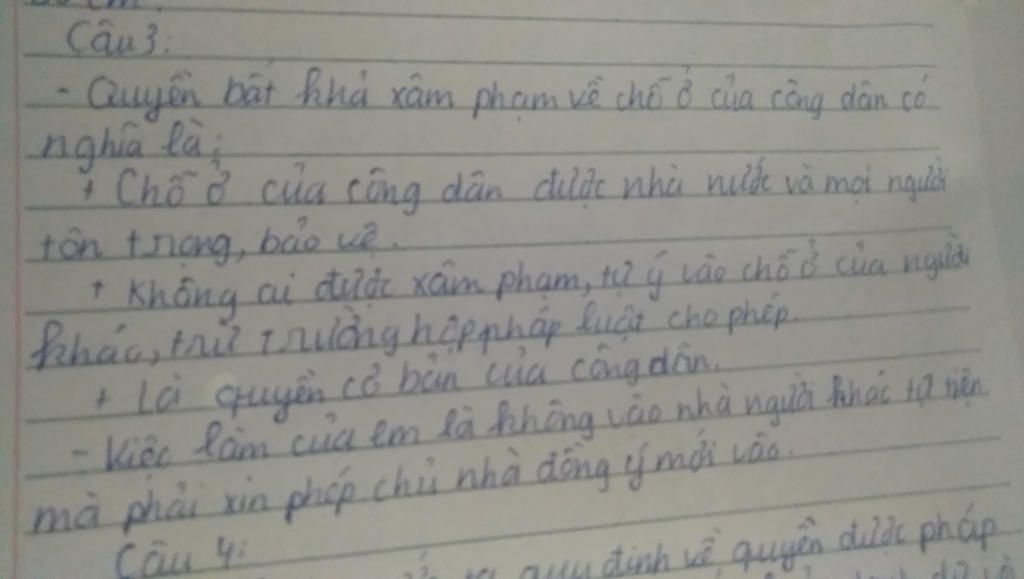 Câu 3:
- Quyền bất khả xâm phạm về chỗ ở của công dân có
nghĩa là:
+ Chỗ ở của công dân được nhà nước và mọi người
tôn trọng, bảo vệ.
+ Không ai được xâm phạm, tự ý vào chỗ ở của người
khác, trừ trường hợp pháp luật cho phép.
+ Là quyền cơ bản của công dân.
- Việc làm của em là không vào nhà người khác tự tiện
mà phải xin phép chủ nhà đồng ý mới vào.
Câu 4:
quy định về quyền được pháp